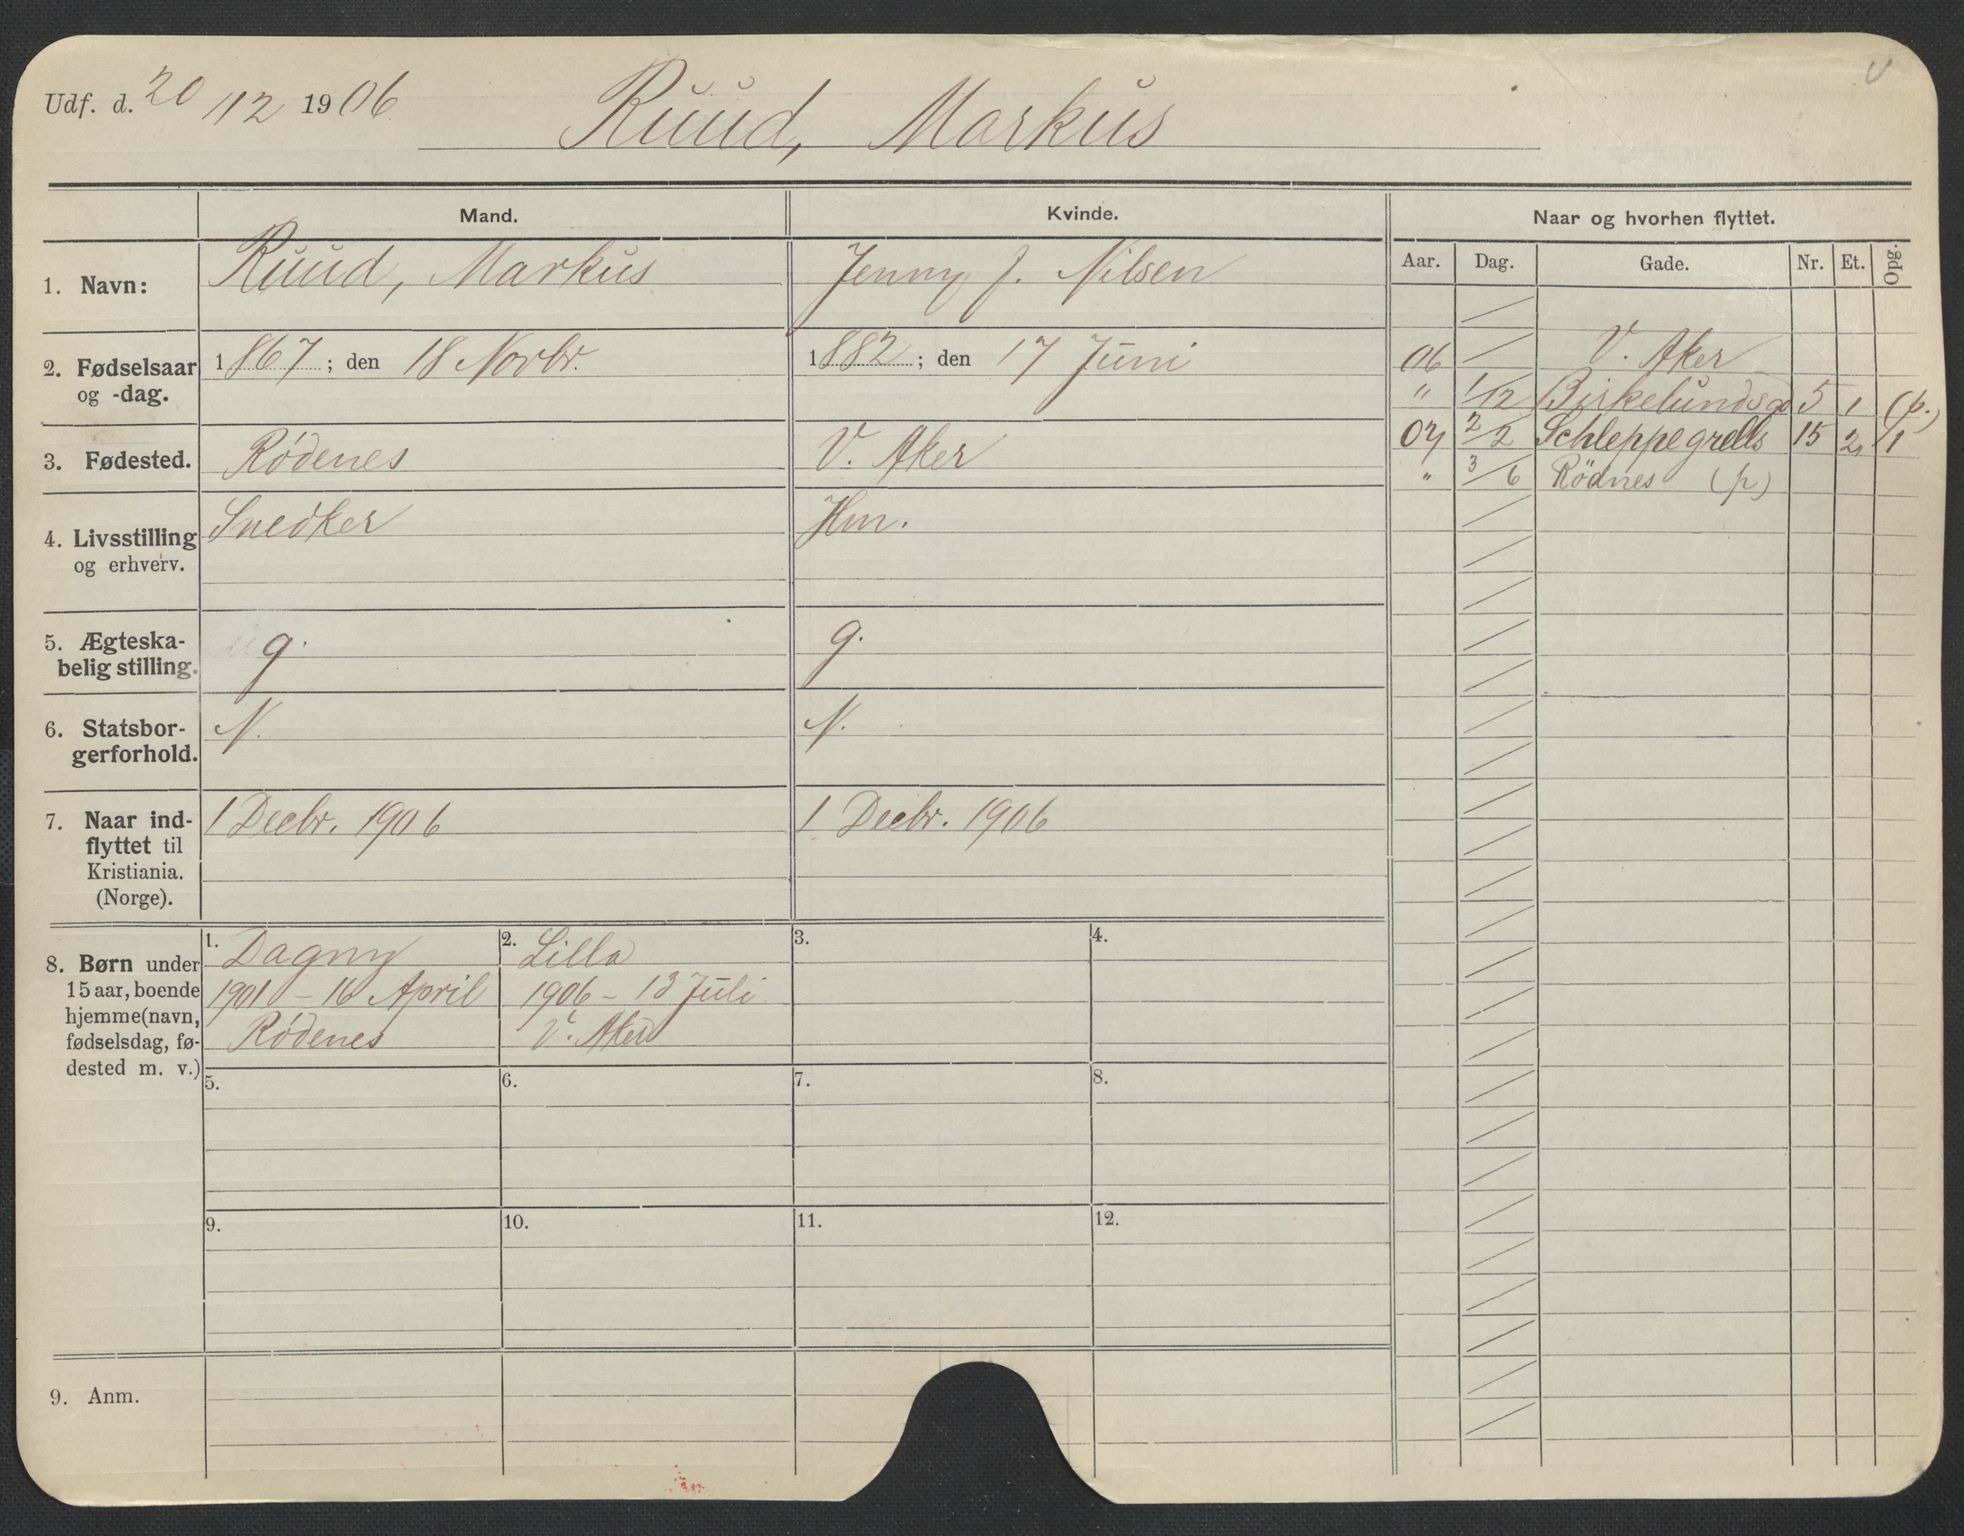 Udf. d. 20/12 1906
Ruud, Markus
Mand.
Kvinde.
Naar og hvorhen flyttet.
Aar. Dag. Gade. Nr. Et. Opg.
1. Navn:
Ruud, Markus
Jenny J. Nilsen
2. Fødselsaar
og -dag.
1867; den 18 Novbr.
1882; den 17 Juni
06 V. Aker
" 1/12 Birkelundsgd 5 1 (p.)
07 2/2 Schleppegrells 15 2 1
" 3/6 Rödnes (p)
3. Fødested.
Rødenes
V. Aker
4. Livsstilling
og erhverv.
Snedker
Hm.
5. Ægteska-
belig stilling.
g.
g.
6. Statsbor-
gerforhold.
N.
N.
7. Naar ind-
flyttet til
Kristiania.
(Norge).
1 Decbr. 1906
1 Decbr. 1906
8. Børn under
15 aar, boende
hjemme (navn,
fødselsdag, fø-
dested m. v.)
1. Dagny
1901 - 16 April
Rødenes
2. Lilla
1906 - 13 Juli
V. Aker
3.
4.
5.
6.
7.
8.
9.
10.
11.
12.
9. Anm.